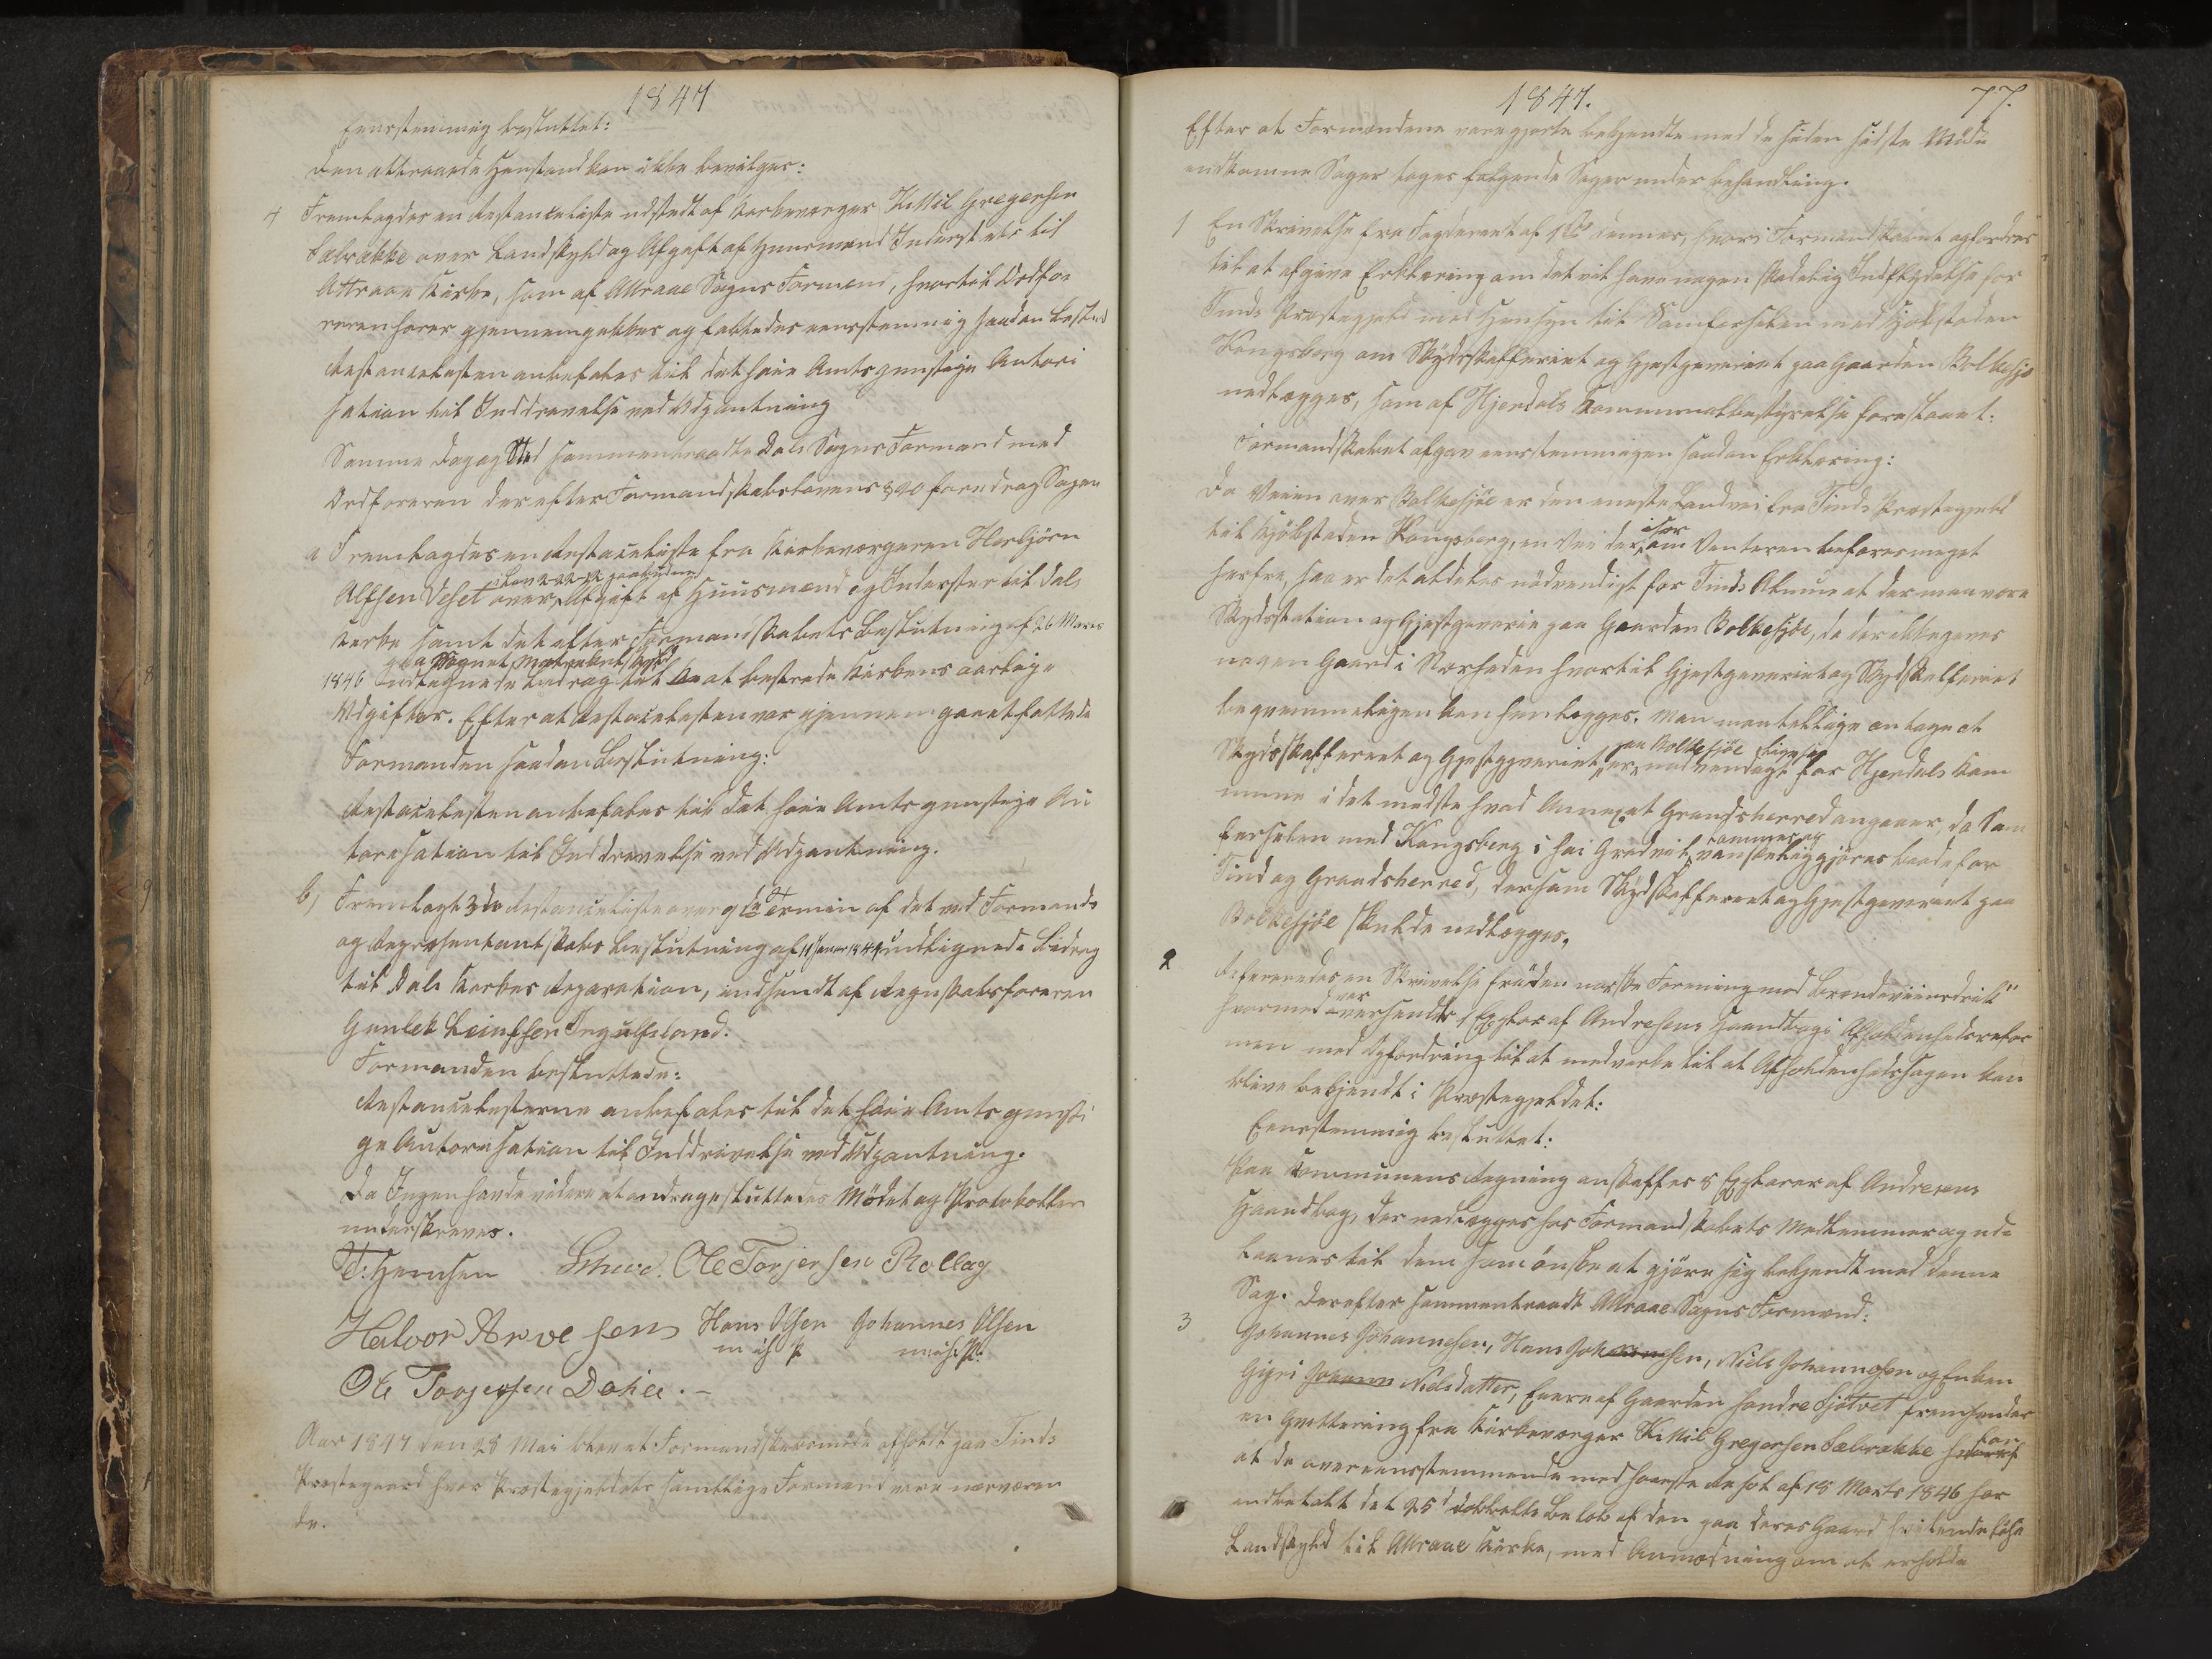 1847
Eenstemmig besluttet:
Den attraaede Henstand kan ikke bevilges:
4 Fremlagdes en Restanceliste udstedt af Kirkeværger Kittil Gregersen
Sælrække over Landskyld og Afgift af Huusmænd Inderst etc til
Attraae Kirke, som af Attraae Sogns Formænd, hvortil Ordfø-
reren hører gjennemgikkes og fattedes eenstemmig saadan Beslut
Restancelisten anbefales til det høie Amts gunstige Autori
sation til Inddrivelse ved Udpantning
Samme Dag og Sted sammentraadte Dals Sogns Formænd med
Ordføreren der efter Formandskabslovens § 20 foredrog Sagen
a Fremlagdes en Restanceliste fra Kirkeværgeren Herbjörn
Alfsen Veset over Afgift af Huusmænd og Inderster til Dals
Kirke samt det efter Formandskabets Beslutning af 26 Marts
paa Sognets Matrikulskyld
1846 udlignede Bidrag til at bestride Kirkens aarlige
Udgifter. Efterat Restancelisten var gjennemgaaet fattede
Formanden saadan Beslutning:
Restancelisten anbefales til det høie Amts gunstige Au
torisation til Inddrivelse ved Udpantning.
b) Fremlagt 3de Restanceliste over Termin af det ved Formands
og Repræsentantskabs Beslutning af 11 Januar 1844 udlignede Bidrag
til Dals Kirkes Reparation, indsendt af Regnskabsføreren
Gunlek Leinssen Ingulfsland:
Formanden besluttede:
Restancelisterne anbefales til det høie Amts gunsti
ge Autorisation til Inddrivelse ved Udpantning.
Da Ingen havde videre at andrage sluttedes Mödet og Protokollen
underskreves.
T. Hemsen Schive. Ole Torjersen Rollag
Halvor Arvesen Hans Olsen Johannes Olsen
m i h P m i h P.
Ole Torjersen Dahle. –
Aar 1847 den 28 Mai blev et Formandskabsmøde afholdt paa Tinds
Præstegaard hvor Præstegjeldets samtlige Formænd vare nærværen
de.
1847. 77.
Efter at Formændene vare gjorte bekjendte med de siden sidste Möde
indkomne Sager toges følgende Sager under Behandling.
1 En Skrivelse fra Fogderiet af dennes, hvori Formandskabet opfordres
til at afgive Erklæring om det vil have nogen skadelig Indflydelse for
Tinds Præstegjeld med Hensyn til Samferselen med Kjøbstaden
Kongsberg om Skydsskafferiet og Gjestgiveriet paa Gaarden Bolkesjø
nedlægges, som af Hjerdals Kommunalbestyrelse foreslaaet.
Formandskabet afgav eenstemmigen saadan Erklæring:
Da Veien over Bolkesjöe er den eneste Landvei fra Tinds Præstegjeld
til Kjöbstaden Kongsberg, en Vei der især om Vinteren befares meget
herfra, saa er det aldeles nödvendigt for Tinds Almue at der maa være
Skydsstation og Gjestgiverie paa Gaarden Bolkesjöe, da der ikke gives
nogen Gaard i Nærheden hvortil Gjestgiveriet og Skydsskafferiet
beqvemmeligen kan henlægges. Man maa tillige antage at
Skydsskafferiet og Gjestgiveriet paa Bolkesjöe er ligesaa nødvendigt for Hjerdals Kom
mune i det mindste hvad Annexet Grandsherred angaaer, da Sam
ferselen med Kongsberg i høi Grad vil vanskeliggjöres baade for
Tind og Grandsherred, dersom Skydsskafferiet og Gjestgiveriet paa
Bolkesjöe skulde nedlægges.
2 Refereredes en Skrivelse fra "den norske Forening mod Brændeviinsdrik"
hvormed var oversendt 1 Explar af Andresens Haandbog i Afholdenhedsrefor
men med Opfordring til at medvirke til at Afholdenhedssagen kan
blive bekjendt i Præstegjeldet:
Eenstemmig besluttet:
Paa Communens Regning anskaffes 8 Explarer af Andresens
Haandbog, der nedlægges hos Formandskabets Medlemmer og ud-
laanes til dem som önske at gjöre sig bekjendt med denne
Sag. Derefter sammentraadt Attraae Sogns Formænd:
3 Johannes Johannesen, Hans Johannesen, Niels Johannesen og Enken
Gigri Johann Nielsdatter, Eiere af Gaarden söndre Sjötvet fremsender
en Qvittering fra Kirkeværger Kittil Gregersen Sælrække for
at de overeensstemmende med höieste Resol af 18 Marts 1846 har
indbetalt det 25d dobbelte Beløb af den paa deres Gaard hvilende
Landskyld til Attraae Kirke, med Anmodning om at erholde